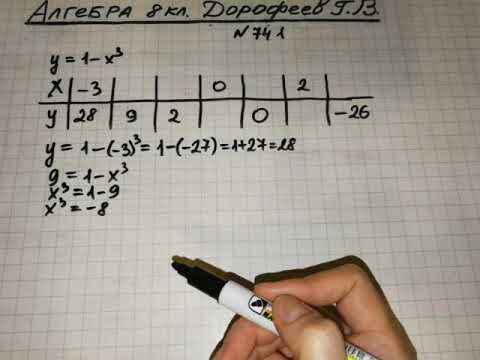 Алгебра 8 кл. Дорофеев Г.В.
№ 741
y = 1 - x³
x -3 0 2
y 28 9 2 0 -26
y = 1-(-3)³ = 1-(-27) = 1+27 = 28
9 = 1 - x³
x³ = 1 - 9
x³ = -8